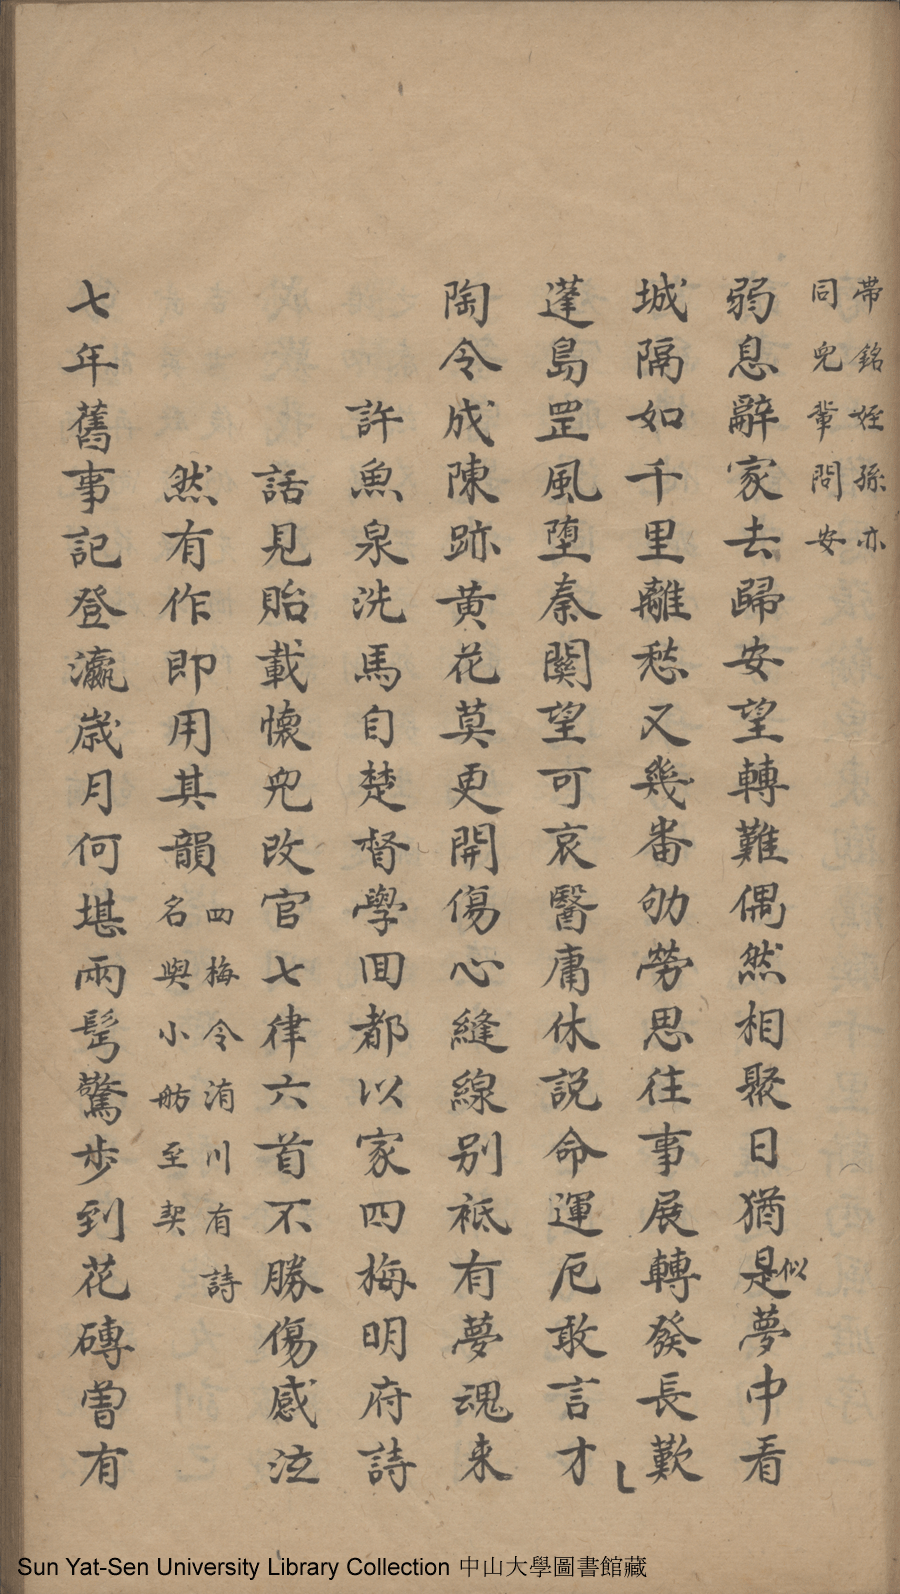 帶銘姪孫亦
同兒輩問安
弱息辭家去歸安望轉難偶然相聚日猶是似夢中看
城隔如千里離愁又幾番劬勞思往事展轉發長歎
蓬島罡風墮秦關望可哀醫庸休說命運厄敢言才
陶令成陳跡黃花莫更開傷心縫線別祗有夢魂來
許魚泉洗馬自楚督學回都以家四梅明府詩
話見貽載懷兒改官七律六首不勝傷感泣
然有作即用其韻四梅令洧川有詩名與小舫至契
七年舊事記登瀛歲月何堪兩鬢驚步到花磚曾有
Sun Yat-Sen University Library Collection 中山大學圖書館藏